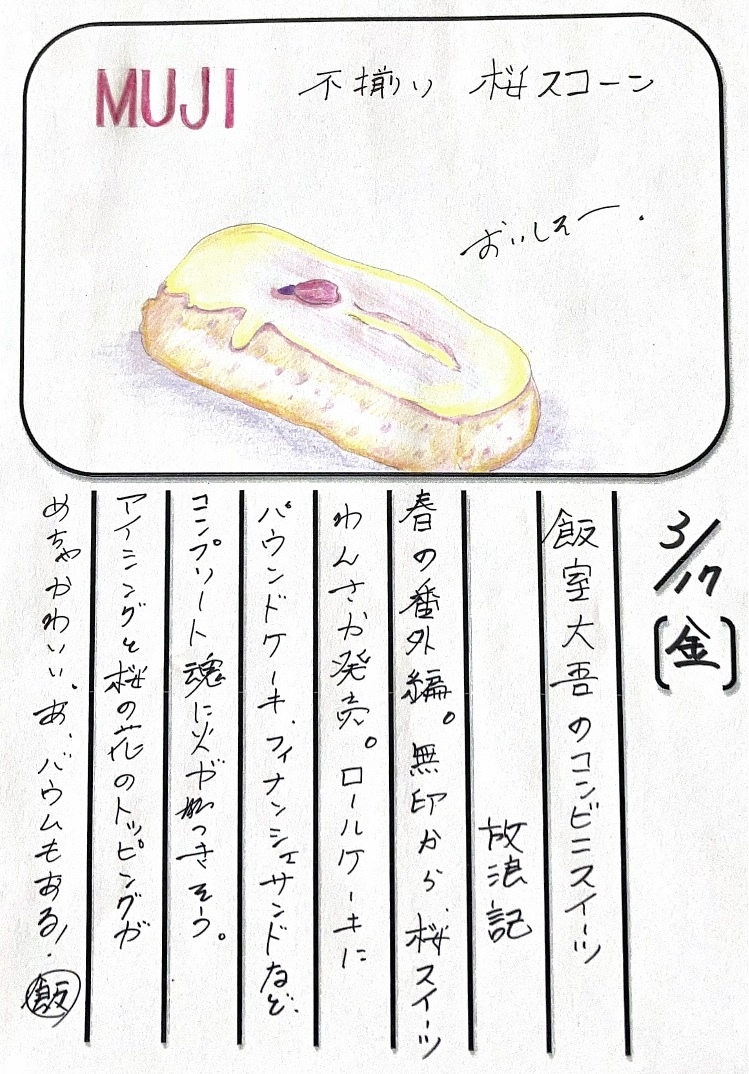 MUJI 不揃い 桜スコーン
おいしえー.
3/17
[金]
飯室大吾のコンビニスイーツ
放浪記
春の番外編。無印から、桜スイーツ
わんさか発売。ロールケーキに
パウンドケーキ、フィナンシェサンドなど、
コンプリート魂に火がつきそう。
アイシングと桜の花のトッピングが
めちゃかわいい。あ、バウムもある!
飯